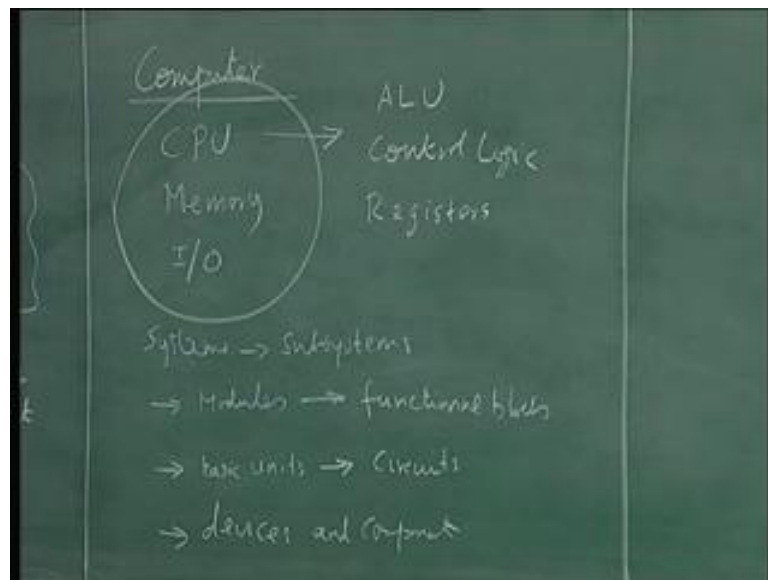 Computer
CPU → ALU
Memory Control Logic
I/O Registors
Systems → Subsystems
→ Modules → functional blocks
→ basic units → Circuits
→ devices and